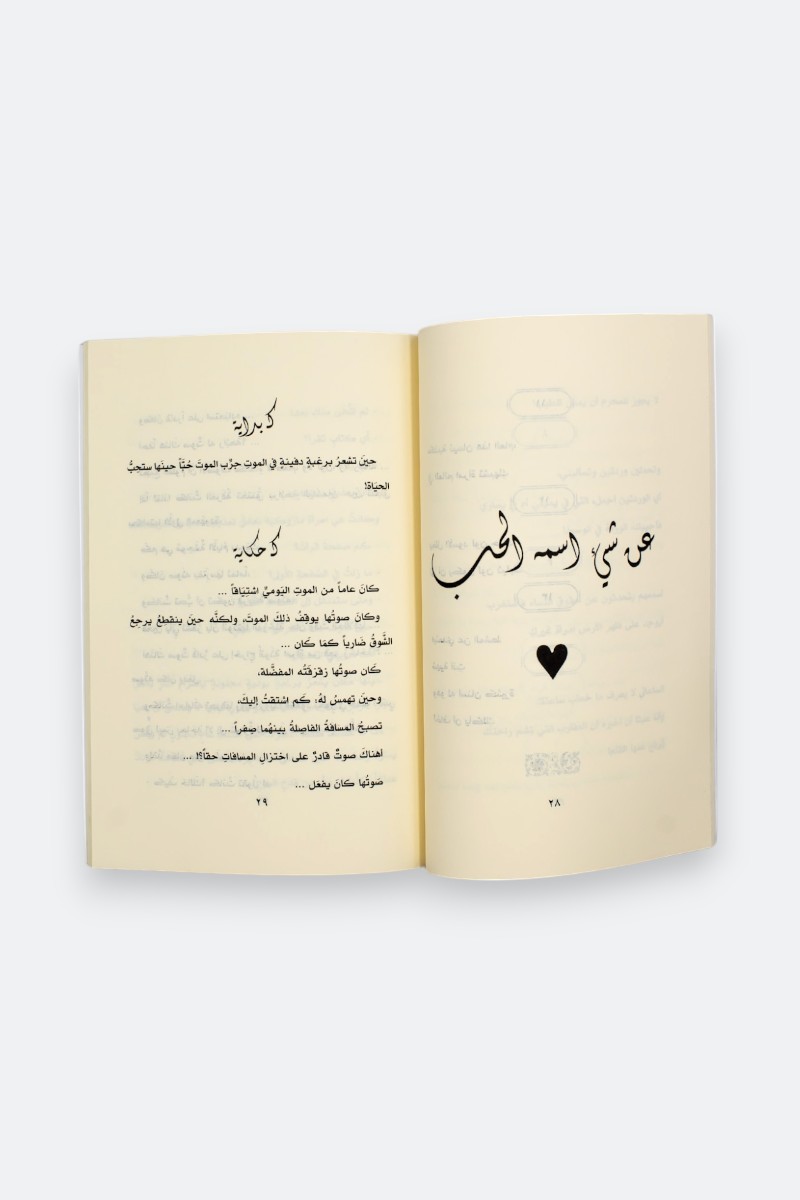 عن شيء اسمه الحب
♥
٢٨
كـ بداية
حينَ تشعرُ برغبةٍ دفينةٍ في الموتِ جرِّب الموتَ حُبَّاً حينَها ستحِبُّ
الحياة!
كـ حكاية
كانَ عاماً من الموتِ اليَوميِّ اشتِيَاقاً ...
وكان صوتُها يوقِفُ ذلكَ الموتَ، ولكنَّه حينَ ينقطعُ يرجعُ
الشَّوقُ ضَارياً كمَا كَان ...
كَان صوتُها زقزقَتُه المفضَّلة،
وحينَ تهمسُ لهُ: كَم اشتقتُ إليكَ،
تصبحُ المسافةُ الفاصِلةُ بينهُما صِفراً ...
أهناكَ صوتٌ قادرٌ على اختزالِ المسافاتِ حقاً؟! ...
صَوتُها كانَ يفعَل ...
٢٩